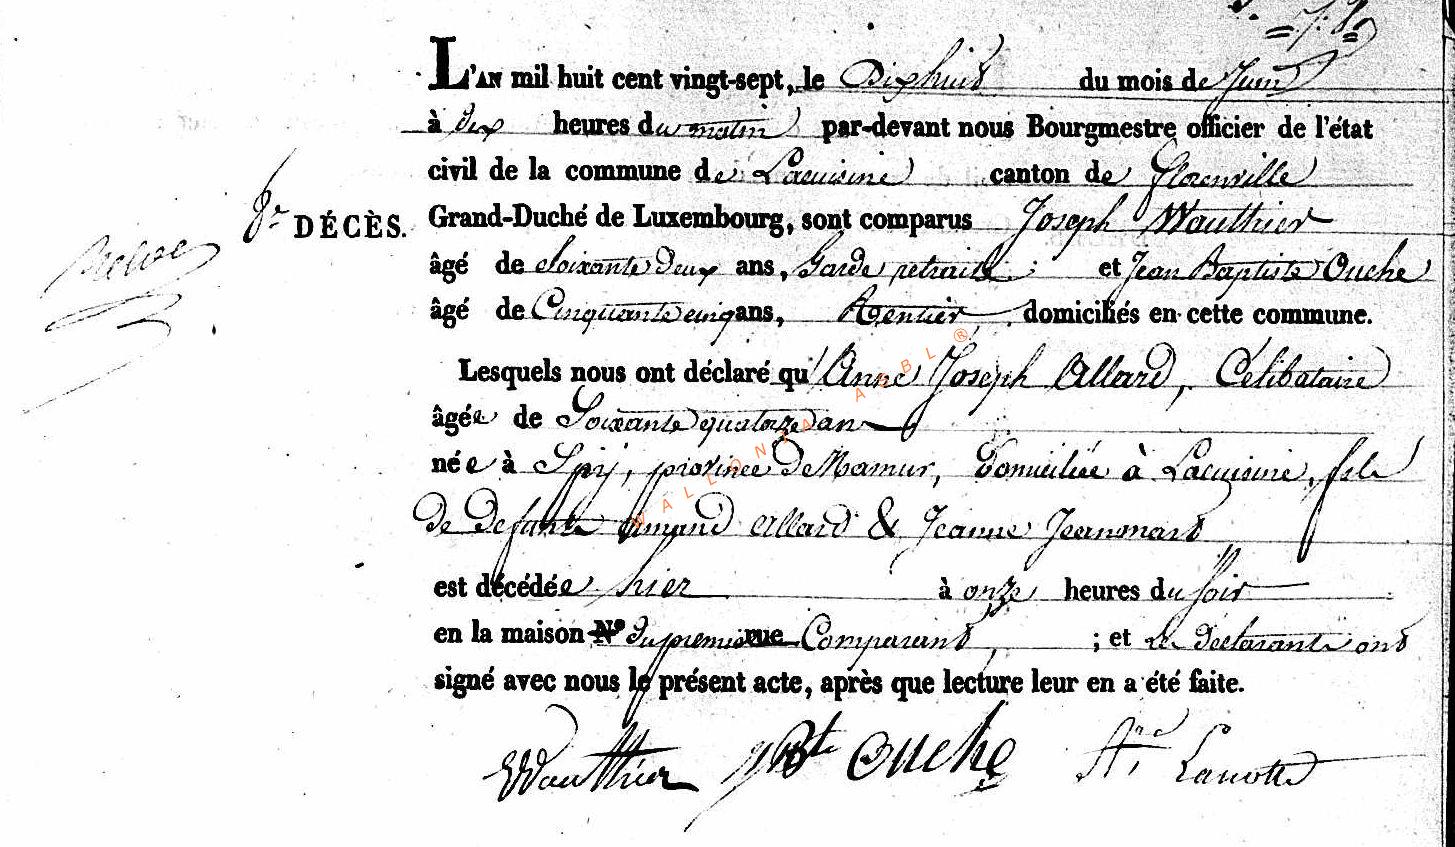 L'AN mil huit cent vingt-sept, le Dixhuit du mois de Juin
à dix heures du matin par-devant nous Bourgmestre officier de l'état
civil de la commune de Lacuisine canton de Florenville
8e DÉCÈS. Grand-Duché de Luxembourg, sont comparus Joseph Wauthier
âgé de Soixante Deux ans, Garde retraité et Jean Baptiste Ouche
âgé de Cinquante cinq ans, Rentier, domiciliés en cette commune.
Lesquels nous ont déclaré qu'Anne Joseph Allard, Célibataire
âgée de Soixante quatorze ans
née à Spy, province de Namur, Domiciliée à Lacuisine, fille
de Defunts Amand Allard & Jeanne Jeanmart
est décédée hier à onze heures du soir
en la maison N° du premier rue Comparant, ; et les déclarants ont
signé avec nous le présent acte, après que lecture leur en a été faite.
Wauthier JBte Ouche Lanotte
WALLONIA ASBL ®